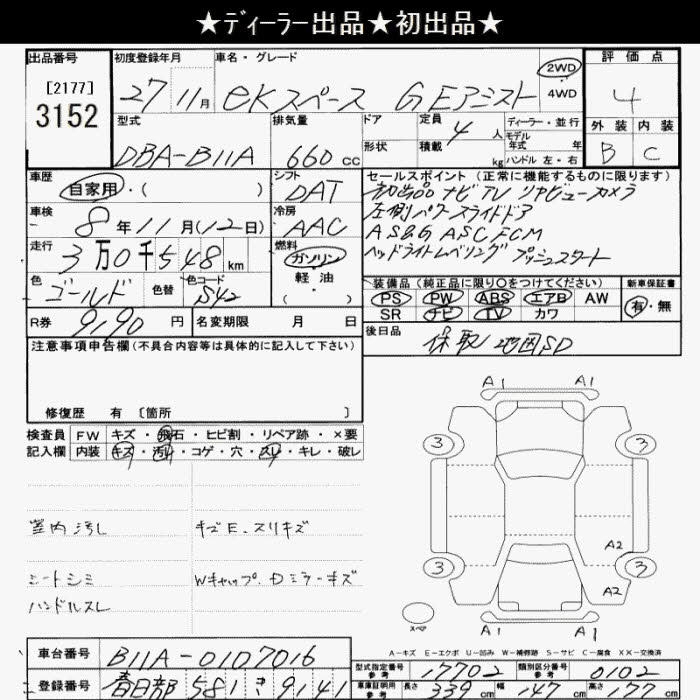 ★ディーラー出品★初出品★
出品番号 初度登録年月 車名・グレード 評価点
[2177] 27年11月 eKスペース G Eアシスト 2WD・4WD 4
3152
型式 排気量 ドア 定員 4人 ディーラー・並行 外装 内装
DBA-B11A 660cc 形状 積載 kg モデル年式 年 B C
ハンドル 左・右
車歴 シフト セールスポイント (正常に機能するものに限ります)
自家用・( ) DAT 初出品 ナビ TV リヤビューカメラ
車検 冷房 左側パワースライドドア
8年11月(12日) AAC AS&G ASC FCM
走行 燃料 ヘッドライトレベリング プッシュスタート
3万0千548km ガソリン
軽油
( )
色 色替 色コード 装備品 (純正品に限り○をつけてください) 新車保証書
ゴールド S42 PS PW ABS エアB AW 有・無
SR ナビ TV カワ
R券 9190円 名変期限 月 日 後日品
保取 地図SD
注意事項申告欄 (不具合内容等は具体的に記入して下さい)
修復歴 有 [箇所 ]
検査員 FW キズ・飛石・ヒビ割・リペア跡・×要
記入欄 内装 キズ・汚れ・コゲ・穴・スレ・キレ・破レ
室内汚レ キズE.スリキズ
シートシミ Wキャップ.Dミラーキズ
ハンドルスレ
A1 A1
3 3
A2
3 3
A2
スペア
A-キズ E-エクボ U-凹み W-補修跡 S-サビ C-腐食 XX-交換済
車台番号 B11A-0107016 型式指定番号 参考 17702 類別区分番号 参考 0102
登録番号 春日部 581 き 9141 車庫証明用 参考 長さ 339cm 幅 147cm 高さ 177cm